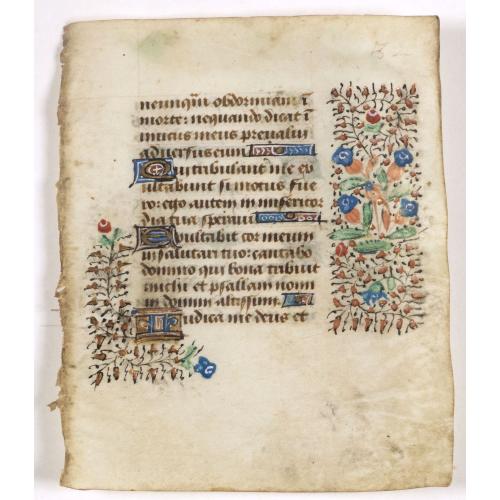 neunq̄m obdormiam ī
morte: nequando dicat ī
imicus meus prevalui
adversus eum
Qui tribulant me ex
ultabunt si motus fue
ro: ego autem in misericor
dia tua speravi
Exultabit cor meum
in salutari tuo: cantabo
domino qui bona tribuit
michi et psallam nomī
in domini altissimi.
Iudica me deus et